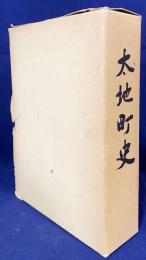 太地町史